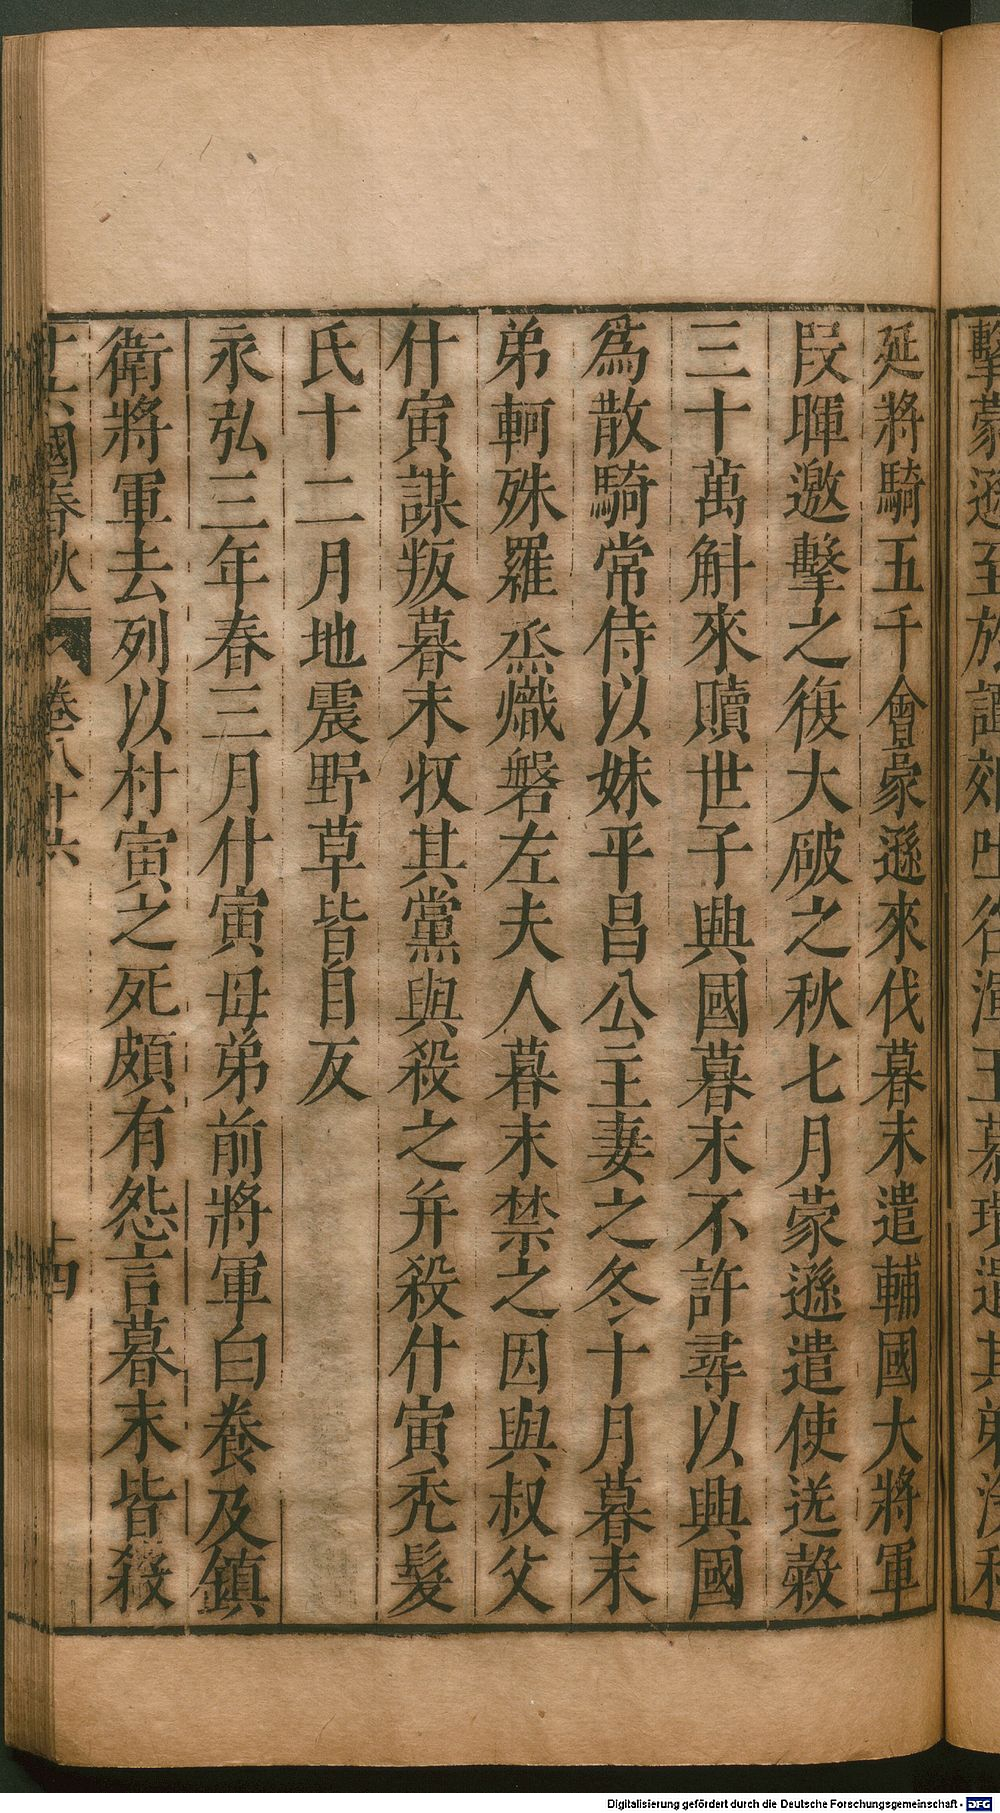 擊蒙遜至於
延將騎五千會蒙遜來伐暮末遣輔國大將軍
段暉邀擊之復大破之秋七月蒙遜遣使送穀
三十萬斛來贖世子興國暮末不許尋以興國
爲散騎常侍以妹平昌公主妻之冬十月暮末
弟軻殊羅烝熾磐左夫人暮末禁之因與叔父
什寅謀叛暮末收其黨與殺之并殺什寅禿髮
氏十二月地震野草皆自反
永弘三年春三月什寅母弟前將軍白養及鎮
衛將軍去列以村寅之死頗有怨言暮末皆殺
十六國春秋 卷八十六 十四
Digitalisierung gefördert durch die Deutsche Forschungsgemeinschaft - DFG